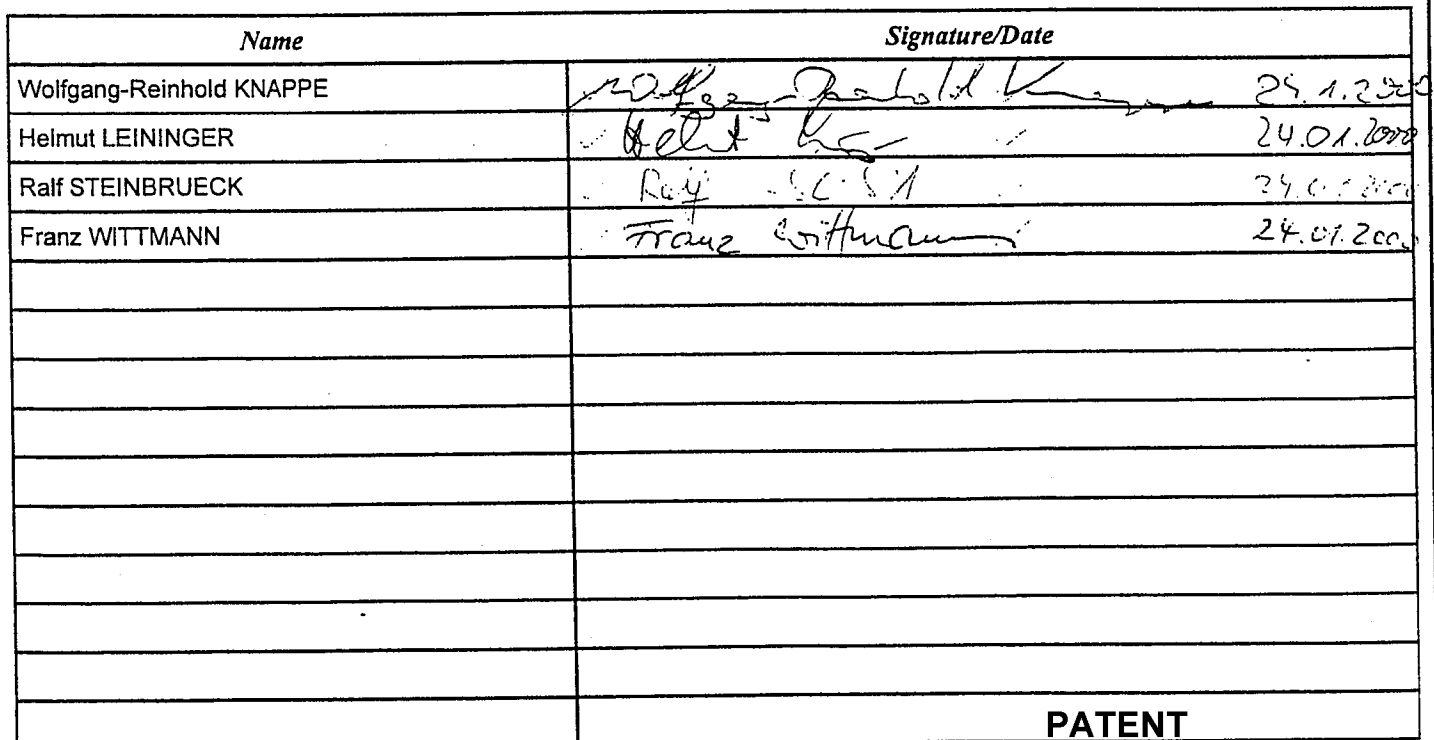 Name Signature/Date
Wolfgang-Reinhold KNAPPE Wolfgang-Reinhold Knappe 24.1.2000
Helmut LEININGER Helmut 24.01.2000
Ralf STEINBRUECK Ralf
Franz WITTMANN Franz Wittmann 24.01.2000
PATENT